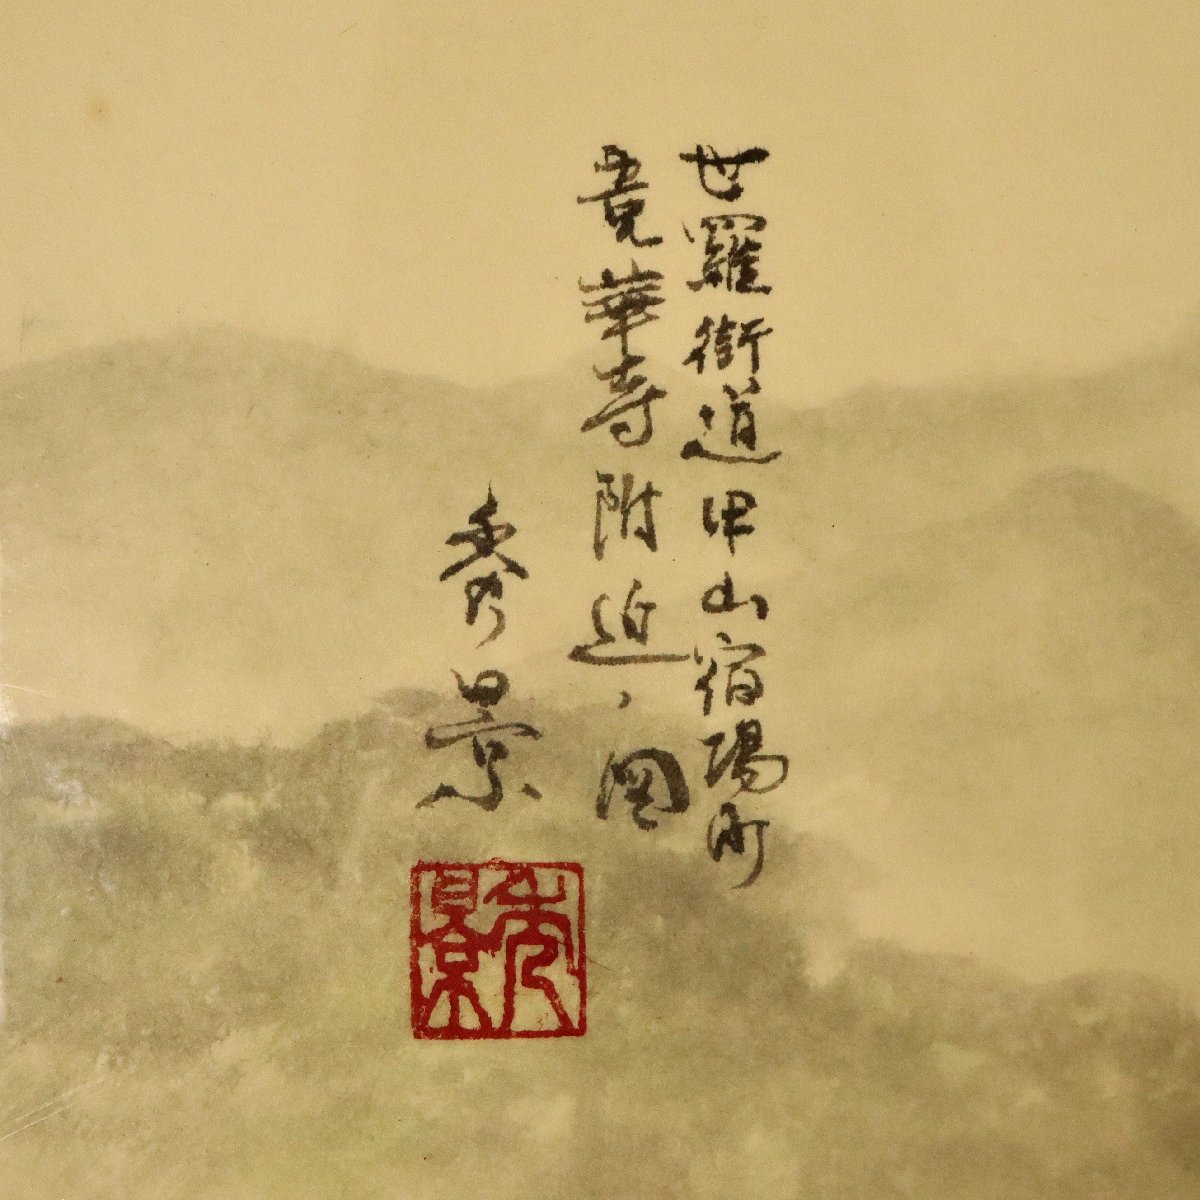 世羅街道甲山宿場町
竜華寺附近ノ図
秀景
秀景